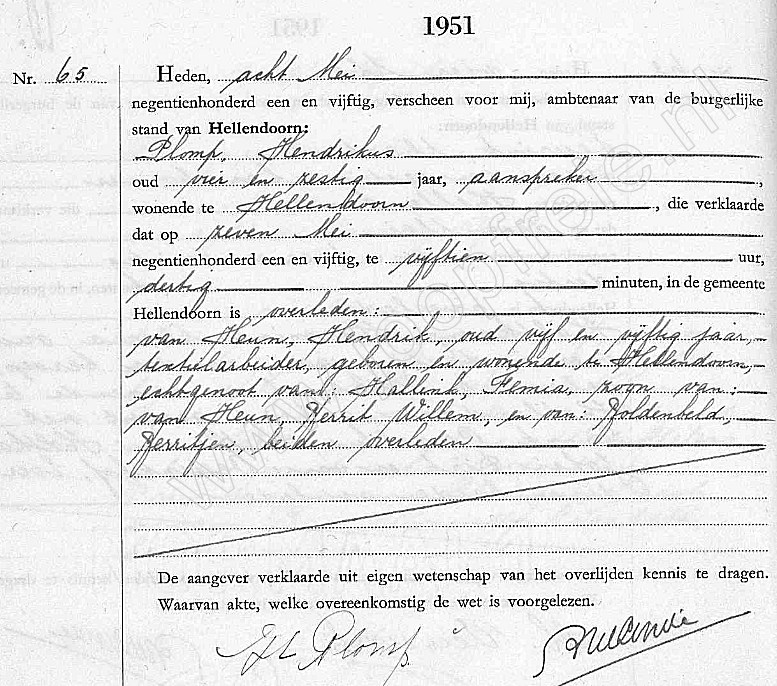 1951
Nr. 65
Heden, acht Mei
negentienhonderd een en vijftig, verscheen voor mij, ambtenaar van de burgerlijke
stand van Hellendoorn:
Plomp, Hendrikus
oud vier en zestig jaar, aanspreker,
wonende te Hellendoorn, die verklaarde
dat op zeven Mei
negentienhonderd een en vijftig, te vijftien uur,
dertig minuten, in de gemeente
Hellendoorn is overleden:
van Heun, Hendrik, oud vijf en vijftig jaar,
textielarbeider, geboren en wonende te Hellendoorn,
echtgenoot van: Hallink, Femia, zoon van:
van Heun, Gerrit Willem, en van:
Gerritjen, beiden overleden
De aangever verklaarde uit eigen wetenschap van het overlijden kennis te dragen.
Waarvan akte, welke overeenkomstig de wet is voorgelezen.
Plomp